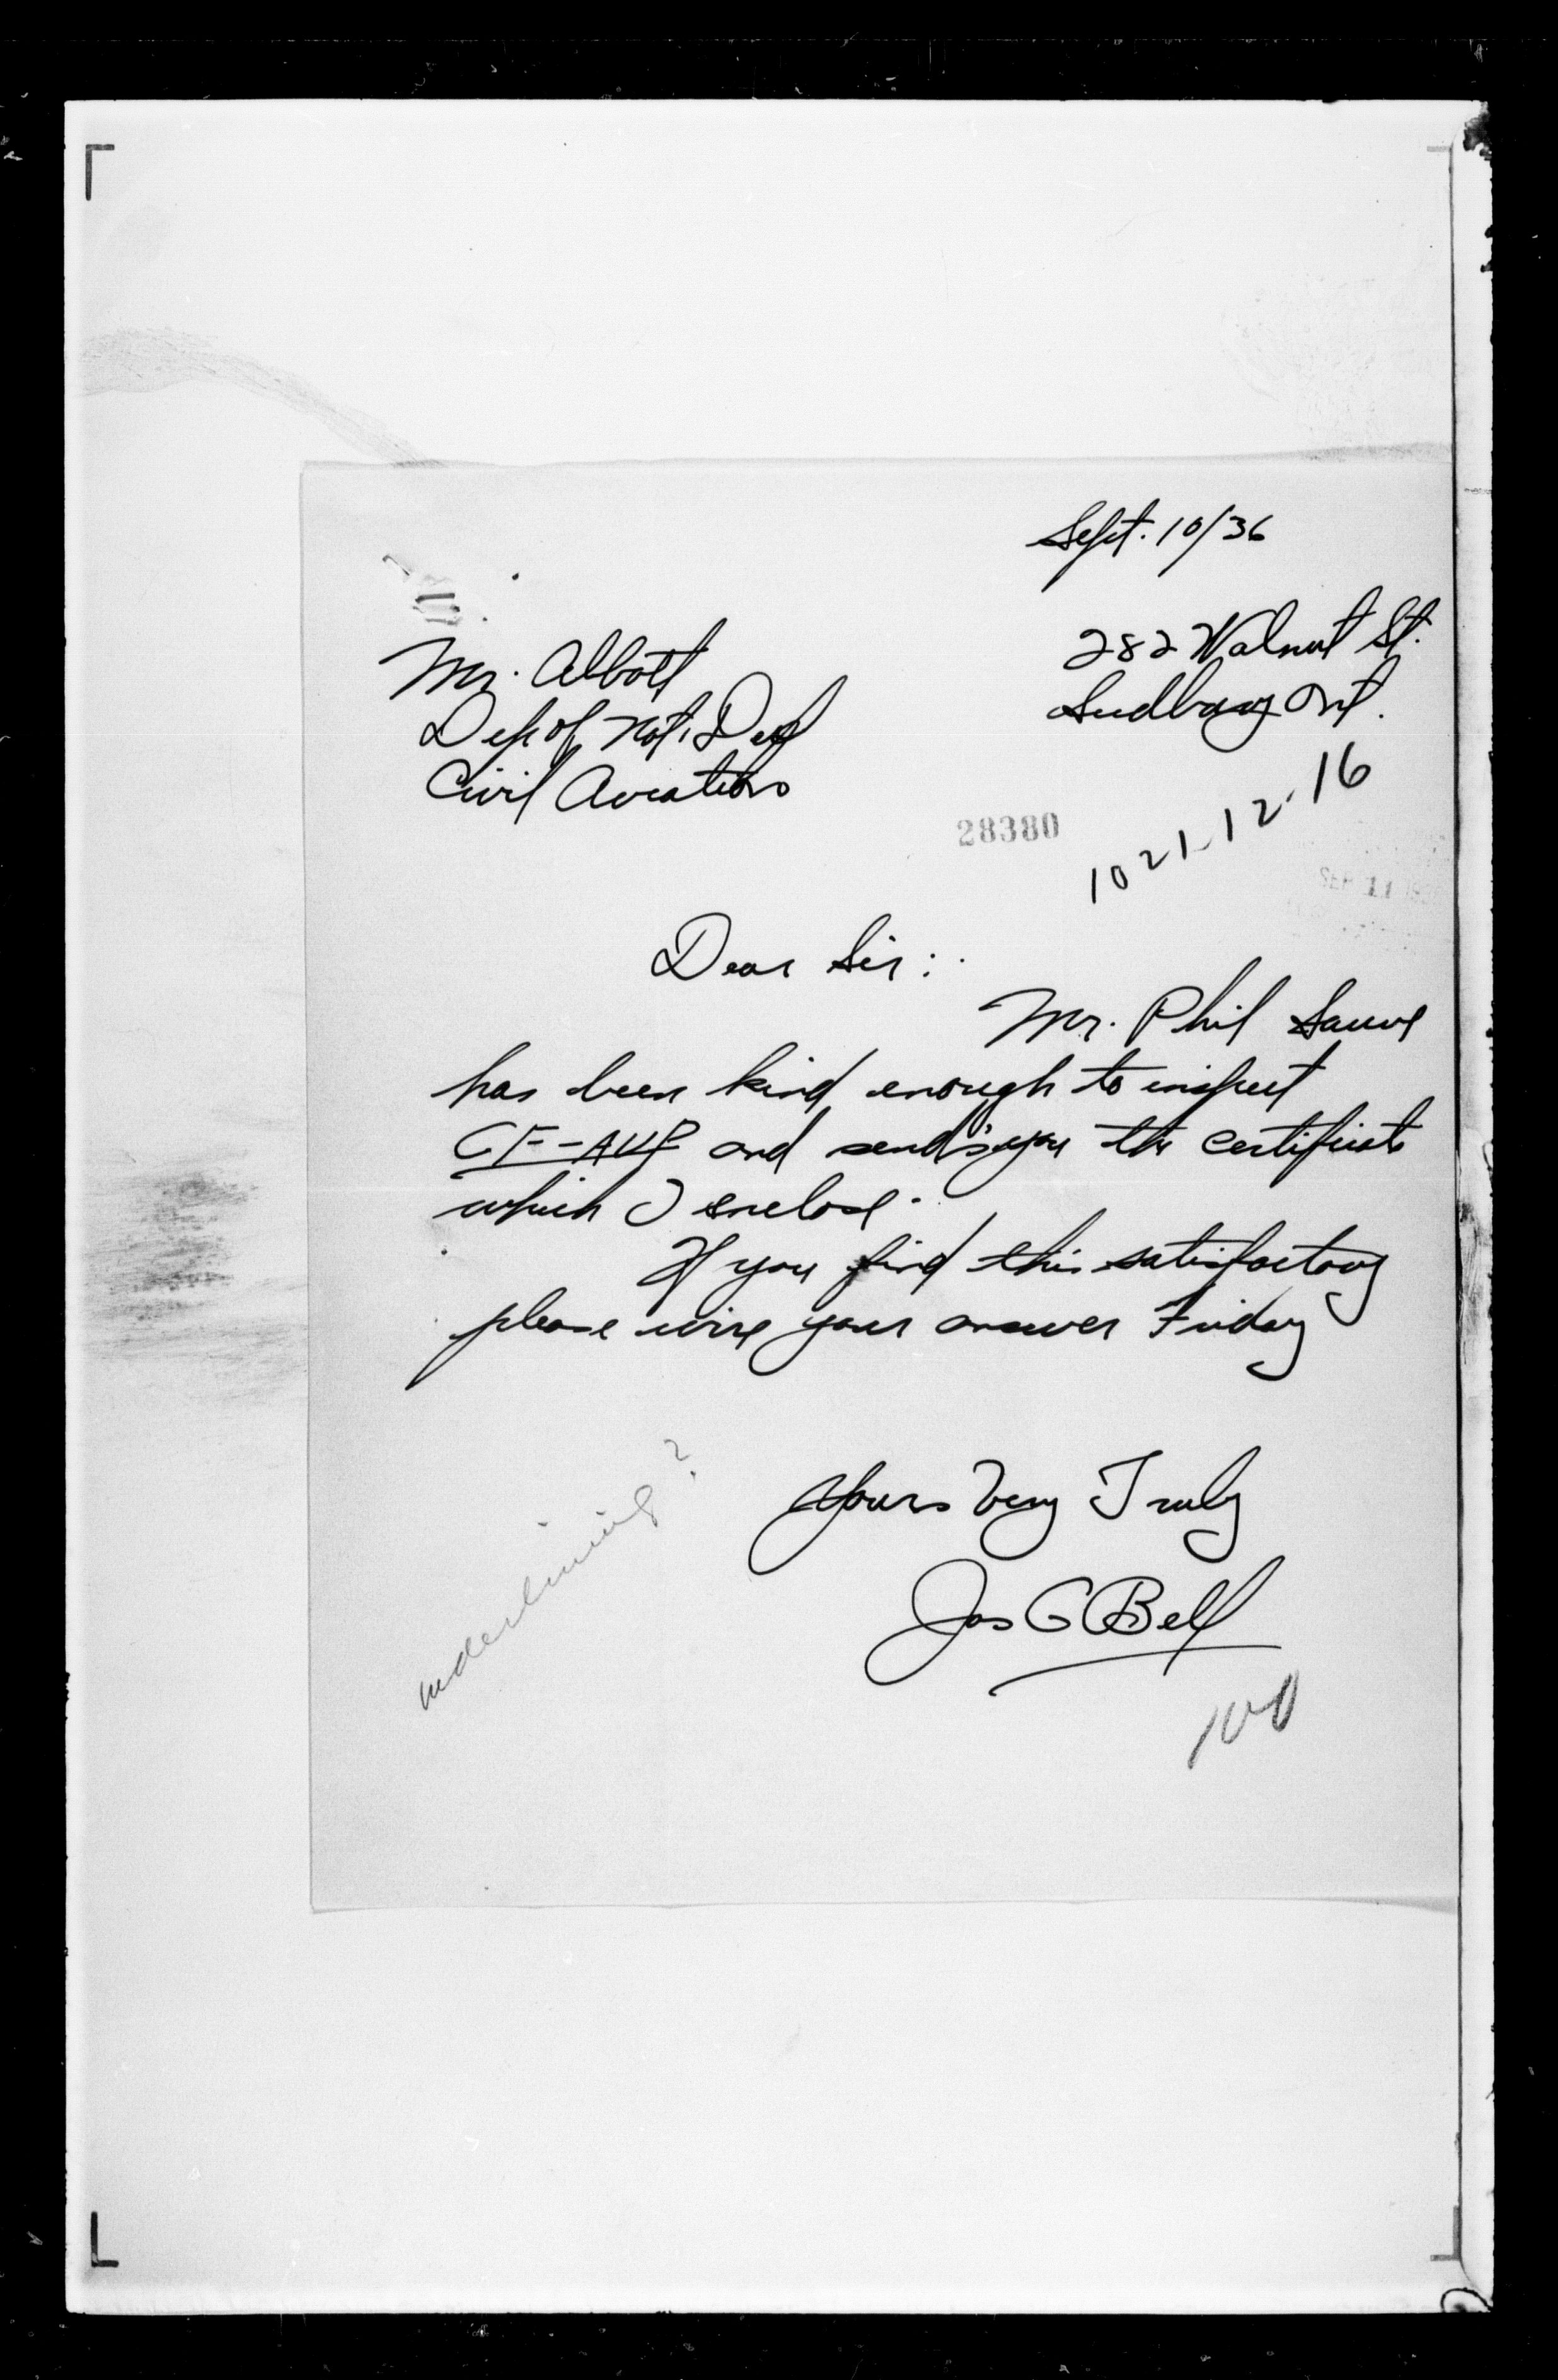 Sept. 10/36
282 Walnut St.
Sudbury Ont.
Mr. Abbott
Dep of Nat. Def
Civil Aviation
28380
1021-12-16
SEP 11
Dear Sir:
Mr. Phil Sauve
has been kind enough to inspect
CF-AUP and sends you the certificate
which I enclose.
If you find this satisfactory
please wire your answer Friday
Yours Very Truly
Jos G Bell
underlining?
100